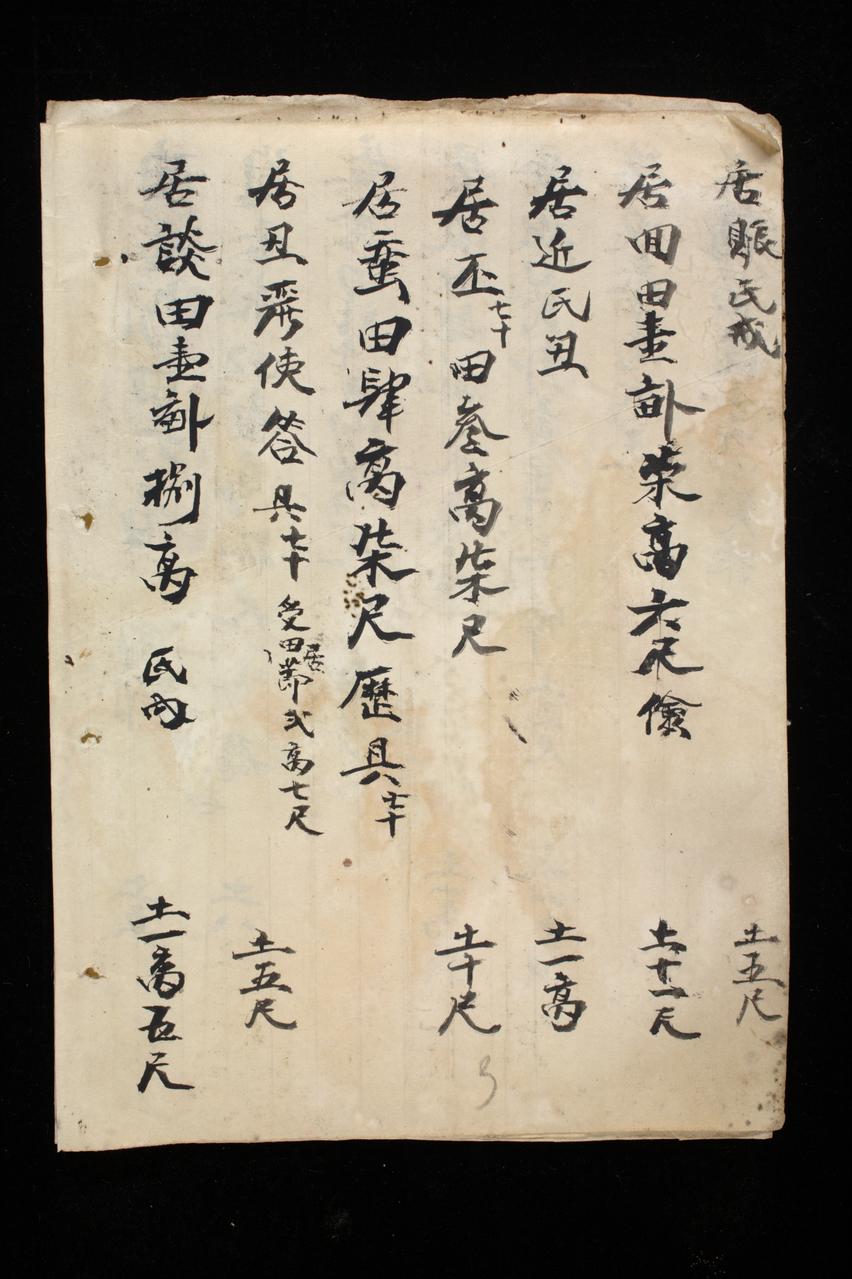 居賬氏戒 土五尺
居囬田壹畝柒高六尺儉 土十一尺
居近氏丑 土一高
居丕七十田叄高柒尺 土十尺
居蚕田肆高柒尺歷具七十
居丑使答具七十受田居節弍高七尺 土五尺
居談田壹畝捌高 氏 土一高五尺